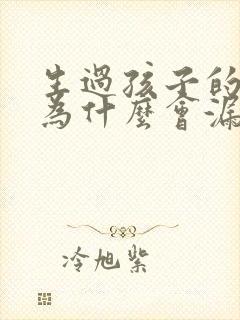 生過孩子的
為什麼會漏
冷旭紫